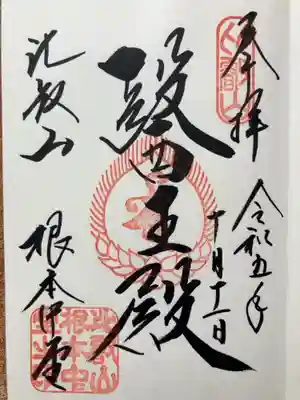 奉拝
令和五年
十月十一日
醫王殿
比叡山
根本中堂